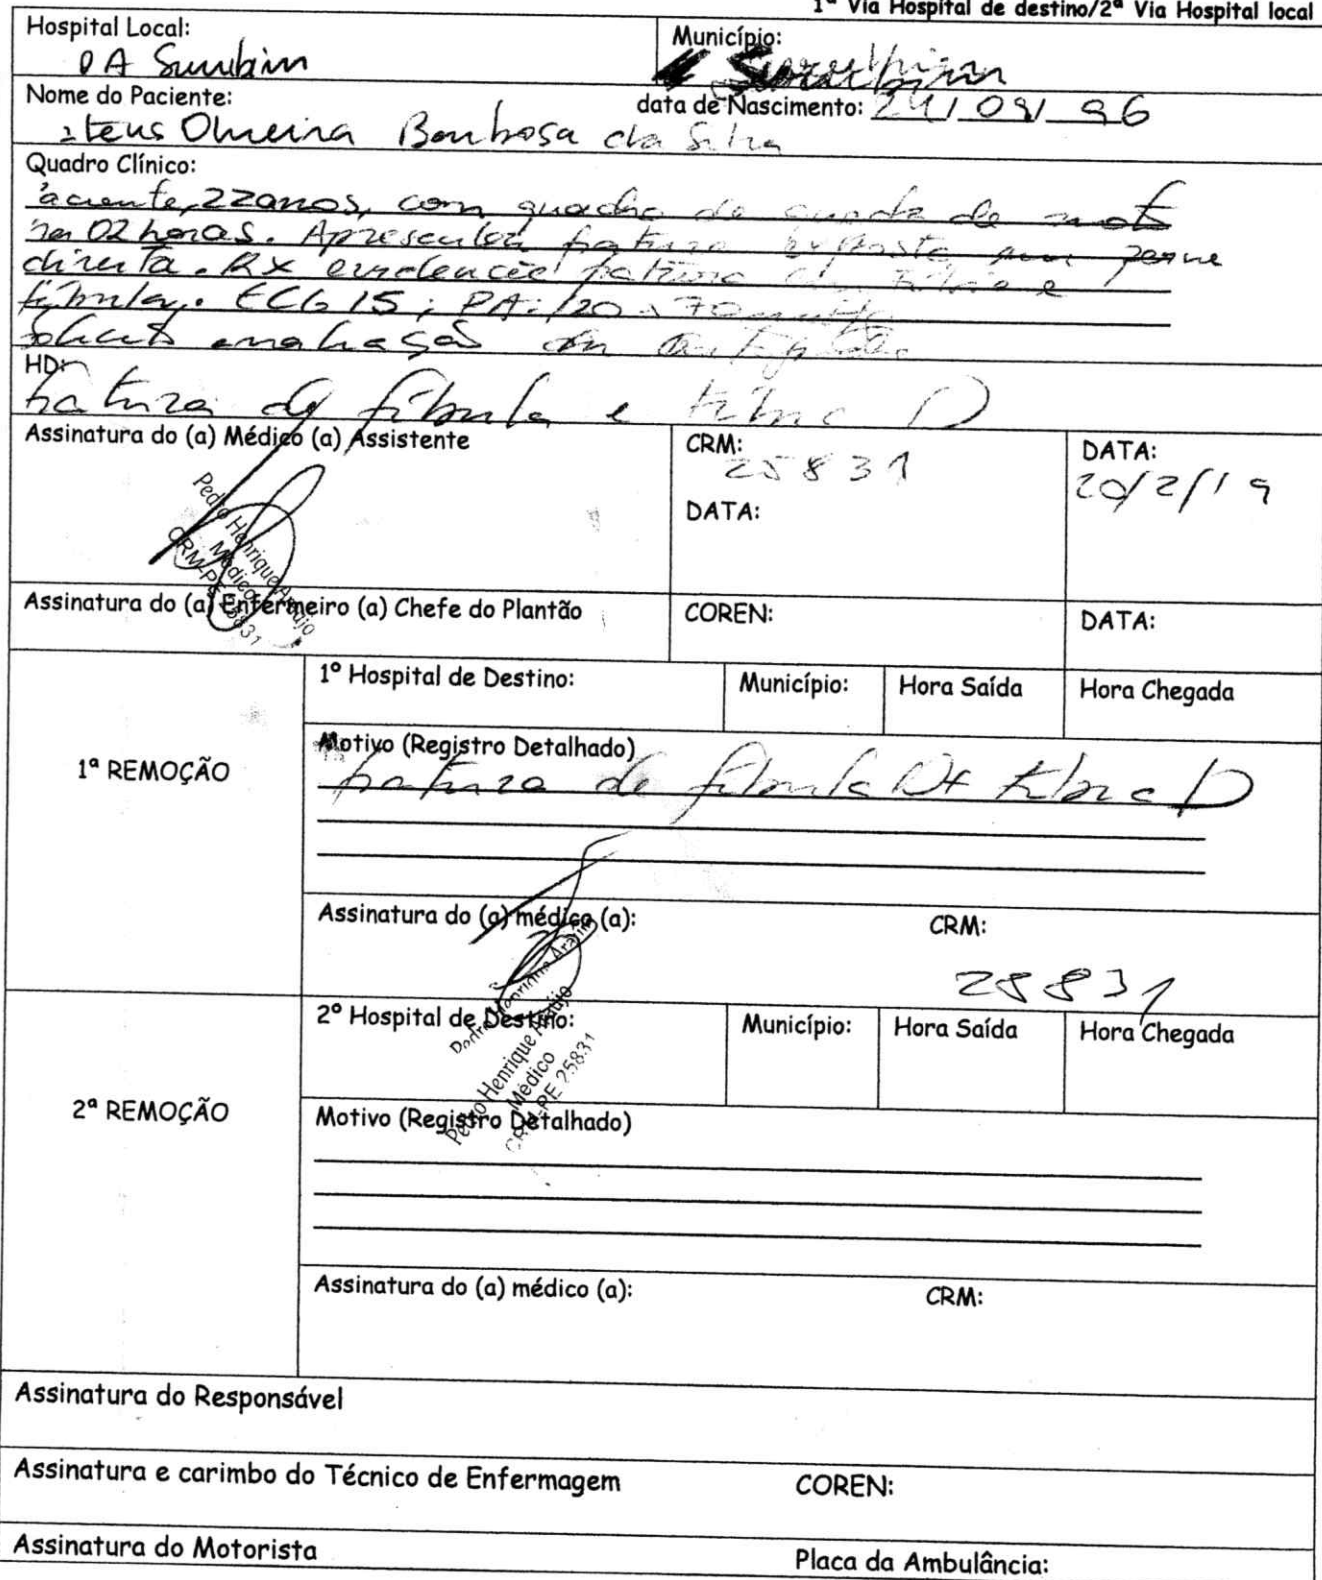 1ª Via Hospital de destino/2ª Via Hospital local
Hospital Local:
Município:
PA Surubim
Surubim
Nome do Paciente:
data de Nascimento: 24/09/96
teus Oliveira Barbosa da Silva
Quadro Clínico:
aciente, 22anos, com quadro de queda de moto
02 horas. Apresentou fratura exposta em perna
direita. RX evidencia fratura em tíbia e
fíbula. ECG 15; PA: 120 x 70
solicito avaliação da ortopedia
HD:
fratura de fíbula e tíbia D
Assinatura do (a) Médico (a) Assistente
CRM:
25831
DATA:
20/2/19
DATA:
Pedro Henrique Araújo
Médico
CRM-PE 25831
Assinatura do (a) Enfermeiro (a) Chefe do Plantão
COREN:
DATA:
1º Hospital de Destino:
Município:
Hora Saída
Hora Chegada
1ª REMOÇÃO
Motivo (Registro Detalhado)
fratura de fíbula D+ tíbia D
Assinatura do (a) médico (a):
CRM:
25831
Pedro Henrique Araújo
Médico
CRM-PE 25831
2º Hospital de Destino:
Município:
Hora Saída
Hora Chegada
2ª REMOÇÃO
Motivo (Registro Detalhado)
Assinatura do (a) médico (a):
CRM:
Assinatura do Responsável
Assinatura e carimbo do Técnico de Enfermagem
COREN:
Assinatura do Motorista
Placa da Ambulância: